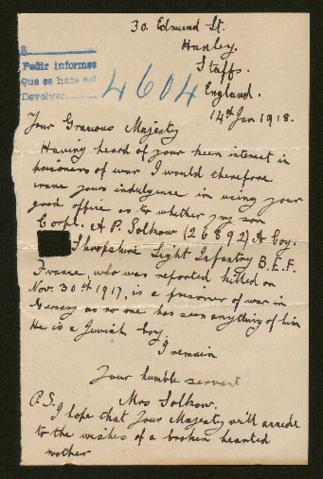 30. Edmund St.
Hanley.
Staffs.
England.
14th Jan 1918.
Pedir informes
Que se haga así
Devolver
4604
Your Gracious Majesty
Having heard of your keen interest in
prisoners of war I would therefore
crave yours indulgence in using your
good office as to whether my son
Corpl. A P. Solkow (26892) A Coy.
Shropshire Light Infantry B.E.F.
France, who was reported killed on
Nov. 30th 1917, is a prisoner of war in
Germany as no one has seen anything of him
He is a Jewish boy.
I remain
Your humble servant
Mrs Solkow.
P.S.
I hope that Your Majesty will accede
to the wishes of a broken hearted
mother